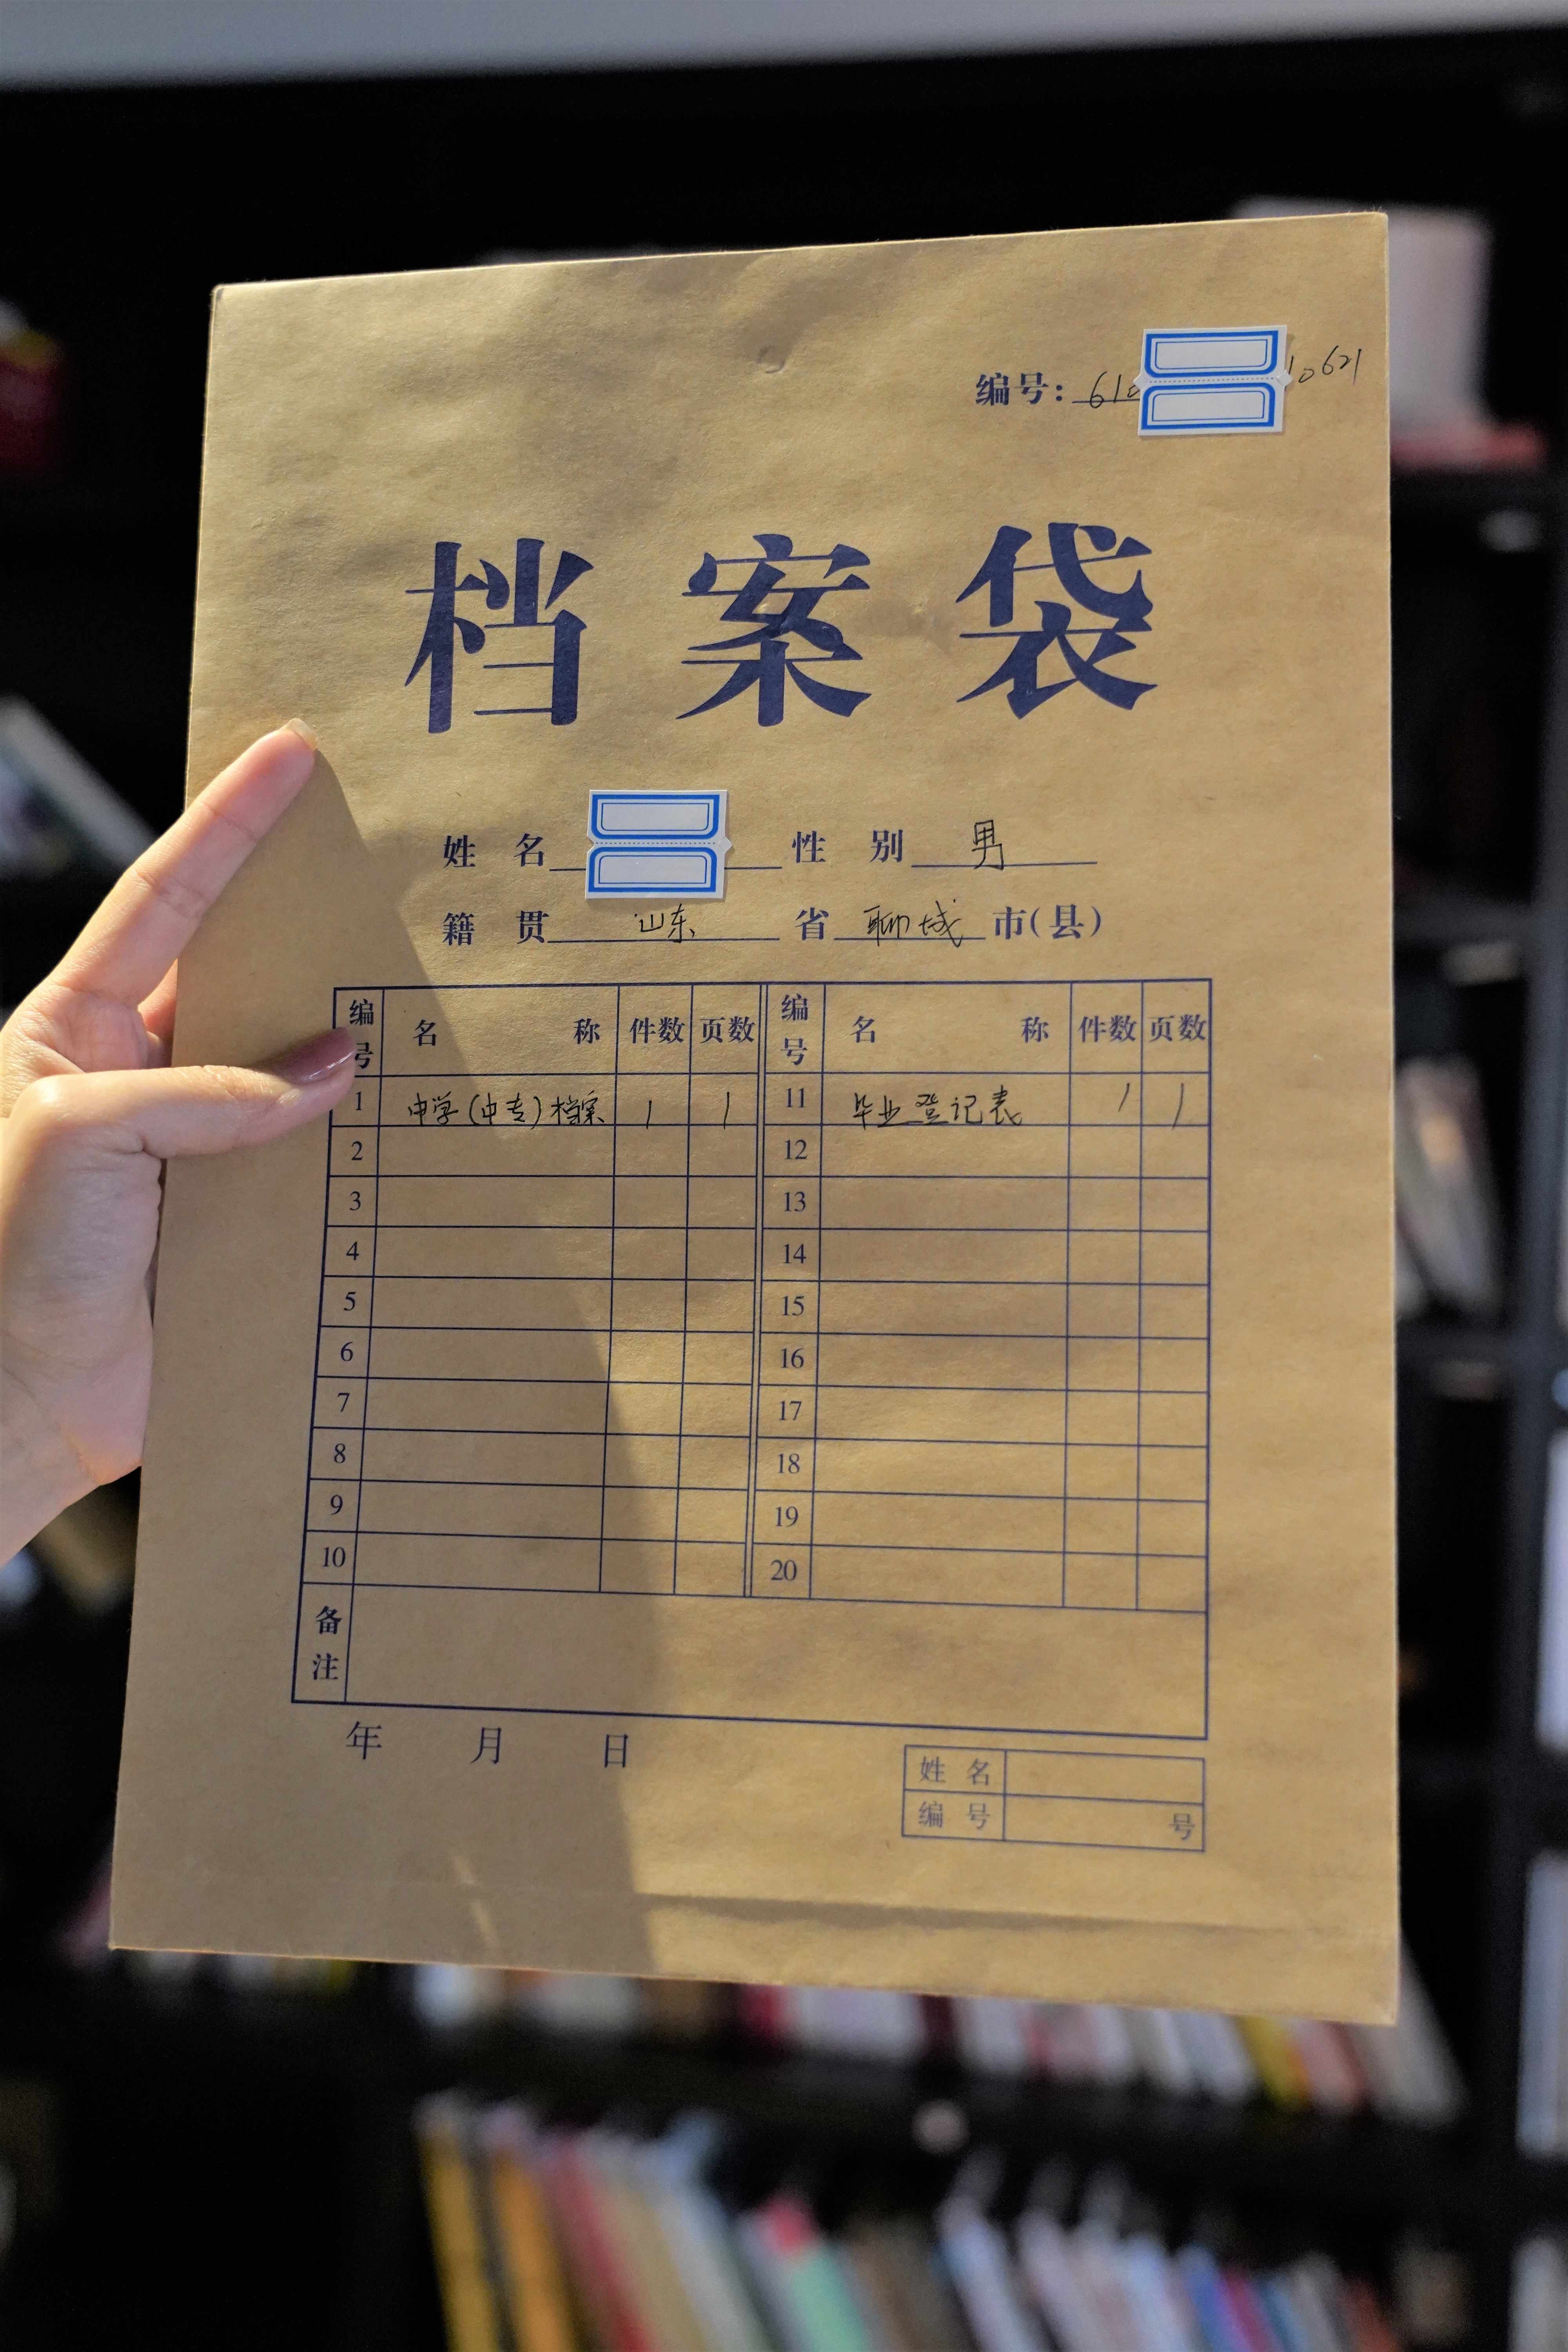 编号: 610 10621
档案袋
姓 名 性 别 男
籍 贯 山东 省 聊城 市(县)
编号 名 称 件数 页数 编号 名 称 件数 页数
1 中学(中专)档案 1 1 11 毕业登记表 1 1
2 12
3 13
4 14
5 15
6 16
7 17
8 18
9 19
10 20
备注
年 月 日
姓 名
编 号 号